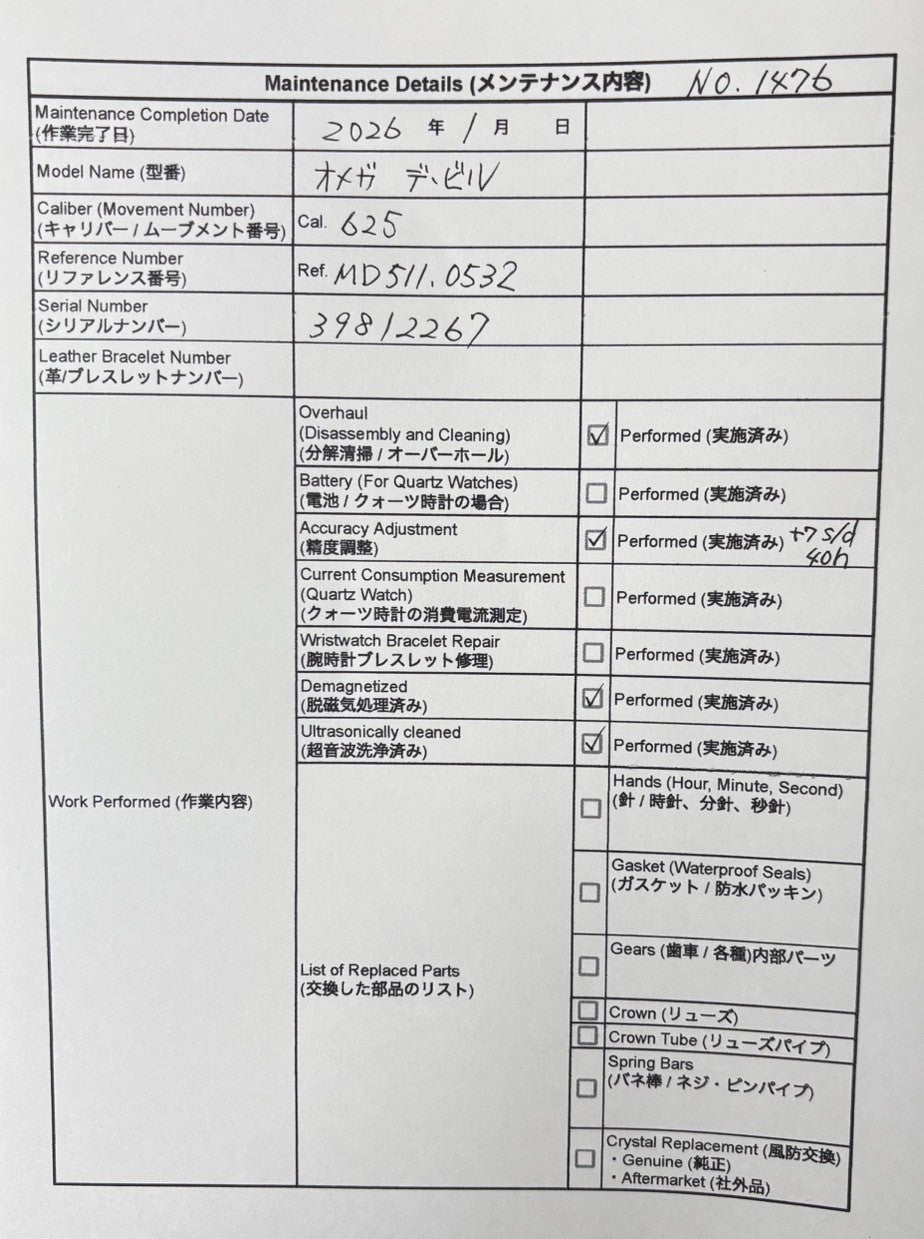 Maintenance Details (メンテナンス内容) NO. 1476
Maintenance Completion Date
(作業完了日)
2026 年 1 月 日
Model Name (型番)
オメガ デ・ビル
Caliber (Movement Number)
(キャリバー / ムーブメント番号)
Cal. 625
Reference Number
(リファレンス番号)
Ref. MD511.0532
Serial Number
(シリアルナンバー)
39812267
Leather Bracelet Number
(革/ブレスレットナンバー)
Work Performed (作業内容)
Overhaul
(Disassembly and Cleaning)
(分解清掃 / オーバーホール)
Performed (実施済み)
Battery (For Quartz Watches)
(電池 / クォーツ時計の場合)
Performed (実施済み)
Accuracy Adjustment
(精度調整)
Performed (実施済み) +7 s/d
40h
Current Consumption Measurement
(Quartz Watch)
(クォーツ時計の消費電流測定)
Performed (実施済み)
Wristwatch Bracelet Repair
(腕時計ブレスレット修理)
Performed (実施済み)
Demagnetized
(脱磁気処理済み)
Performed (実施済み)
Ultrasonically cleaned
(超音波洗浄済み)
Performed (実施済み)
List of Replaced Parts
(交換した部品のリスト)
Hands (Hour, Minute, Second)
(針 / 時針、分針、秒針)
Gasket (Waterproof Seals)
(ガスケット / 防水パッキン)
Gears (歯車 / 各種)内部パーツ
Crown (リューズ)
Crown Tube (リューズパイプ)
Spring Bars
(バネ棒 / ネジ・ピンパイプ)
Crystal Replacement (風防交換)
・Genuine (純正)
・Aftermarket (社外品)